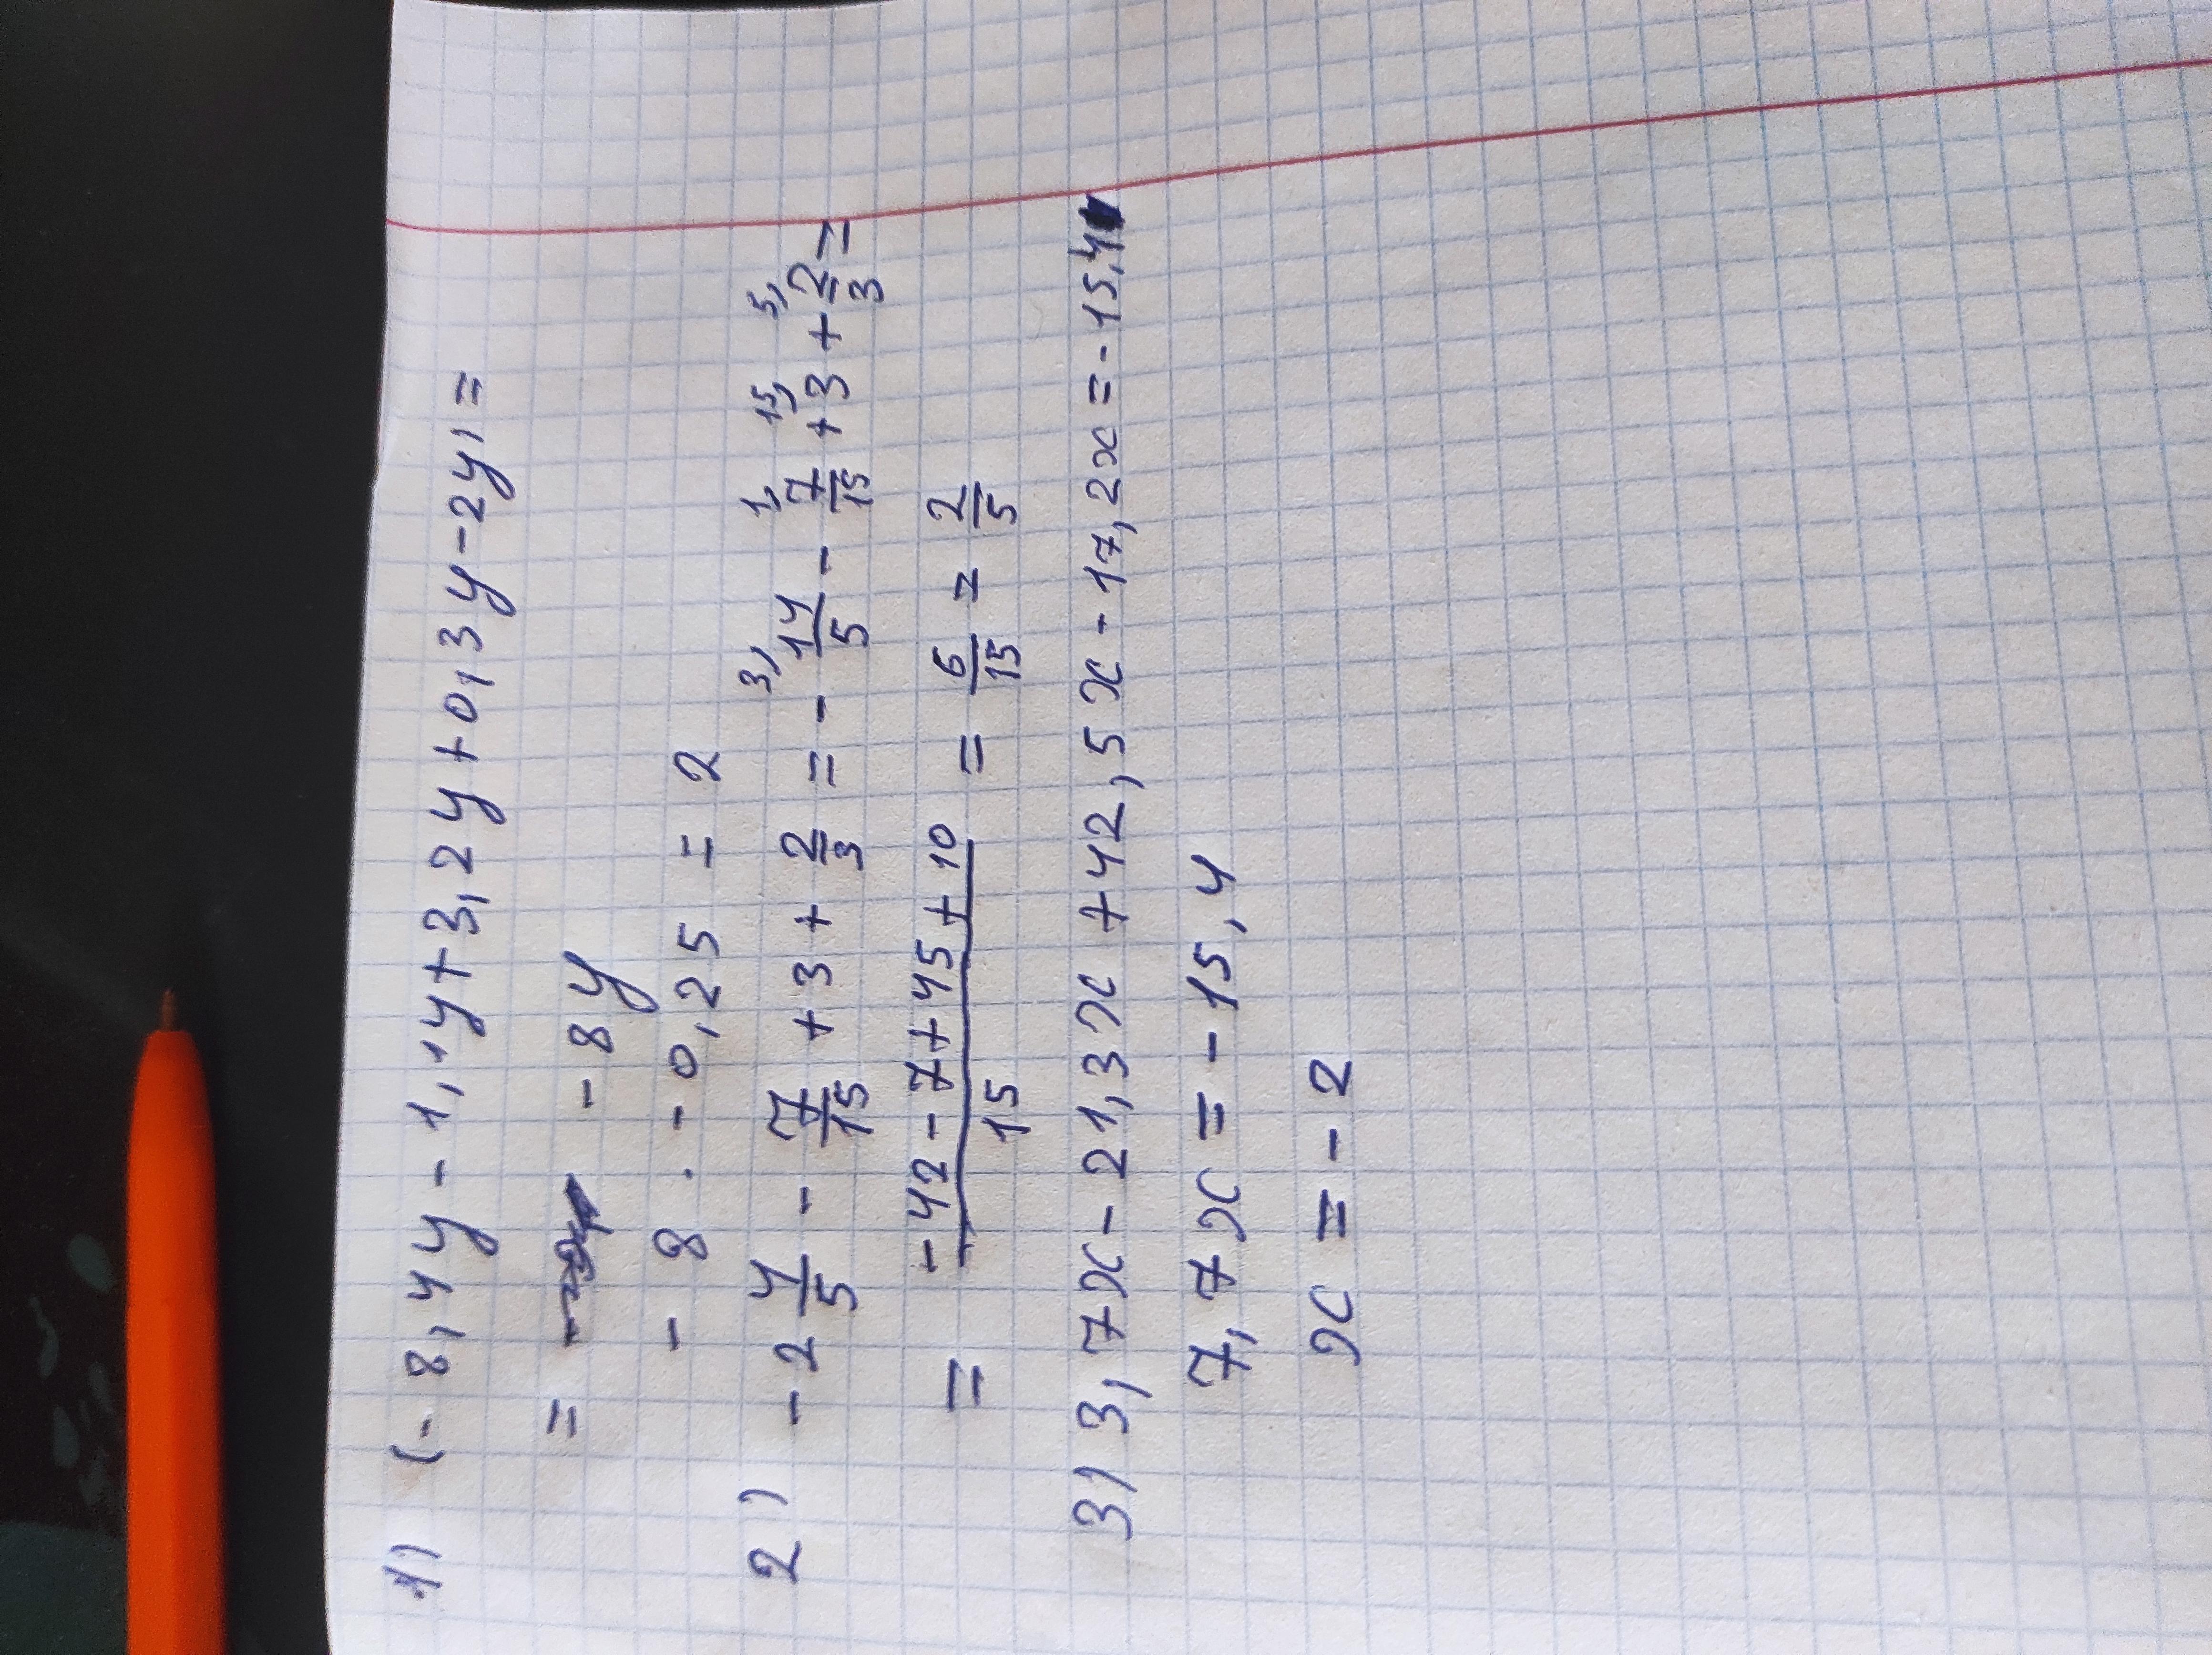 1) (-8,4y-1,1y+3,2y+0,3y-2y)=
= -8y
-8 · -0,25 = 2
2) -2 4/5 - 7/15 + 3 + 2/3 = - 14/5 3) - 7/15 1) + 3 15) + 2/3 5) =
= (-42-7+45+10)/15 = 6/15 = 2/5
3) 3,7x-21,3x+42,5x-17,2x=-15,4
7,7x=-15,4
x=-2